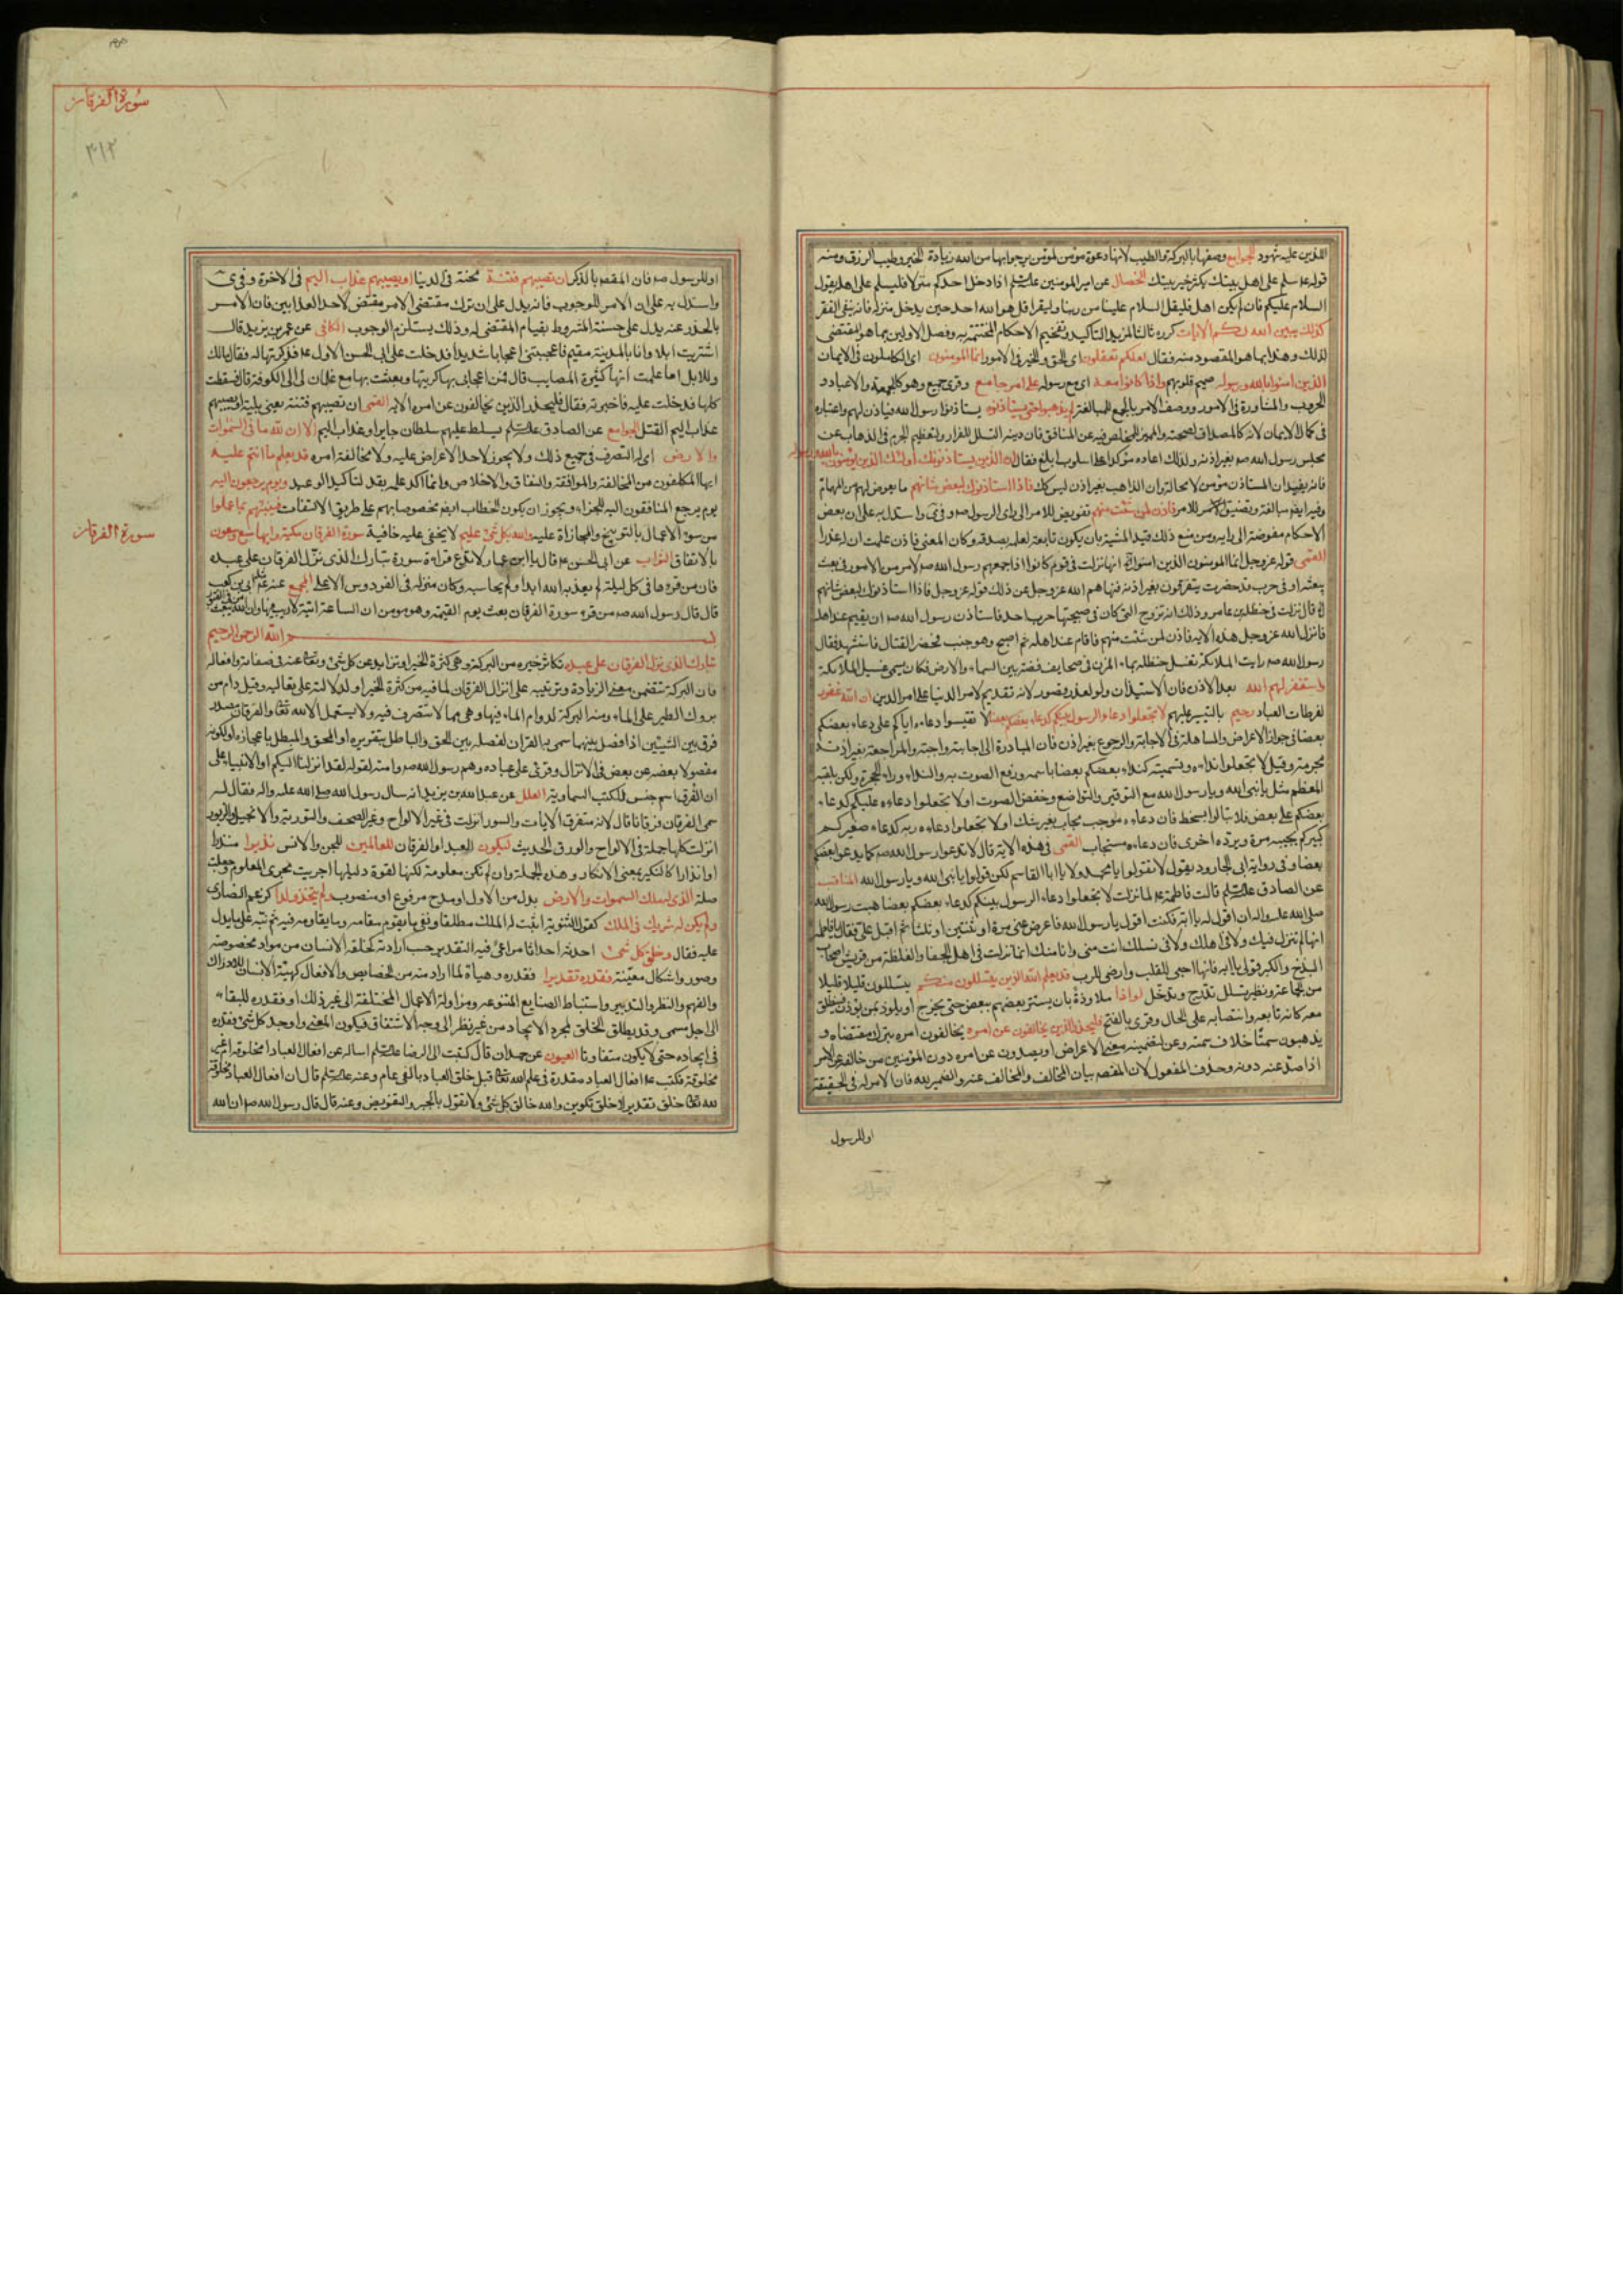 اللذين عليه شهود الجوامع وصفها بالبركة والطيب لانها دعوة مؤمن لمؤمن يرجو بها من الله زيادة الخير وطيب الرزق ومنه
قوله ع سلم على اهل بيتك يكثر خير بيتك الخصال عن امير المومنين عليه السلم اذا دخل احدكم منزلا فليسلم على اهله يقول
السلام عليكم فان لم يكن اهل فليقل السلام علينا من ربنا وليقرا قل هو الله احد حين يدخل منزله فانه ينفي الفقر
كذلك يبين الله لكم الايات كرره ثالثا لمزيد التاكيد وتفخيم الاحكام المختتمة به وفصل الاولين بما هو المقتضى
لذلك وهذا بما هو المقصود منه فقال لعلكم تعقلون اى الحق والخير فى الامور انما المومنون اى الكاملون فى الايمان
الذين امنوا بالله ورسوله صميم قلوبهم واذا كانوا معه اى مع رسوله على امر جامع وقرى جميع وهو كالجمعة والاعياد و
الحروب والمشاورة فى الامور ووصف الامر بالجمع للمبالغة لم يذهبوا حتى يستاذنوه يستاذنوا رسول الله فياذن لهم واعتباره
فى كمال الايمان لانه كالمصداق لصحته والمميز للمخلص فيه عن المنافق فان ديدنه التسلل للفرار ولتعظيم الجرم فى الذهاب عن
مجلس رسول الله صم بغير اذنه ولذلك اعاده مؤكدا على اسلوب ابلغ فقال ان الذين يستاذنونك اولئك الذين يؤمنون بالله ورسوله
فانه يفيد ان المستاذن مؤمن لا محالة وان الذاهب بغير اذن ليس كك فاذا استاذنوك لبعض شانهم ما يعرض لهم من المهام
وفيه ايضم مبالغة وتضييق للامر فاذن لمن شئت منهم تفويض للامر الى راى الرسول صم وقرئ واستدل به على ان بعض
الاحكام مفوضة الى رايه ومن منع ذلك قيد المشية بان يكون تابعة لعلمه بصدقه وكان المعنى فاذن علمت ان له عذرا
القمى قوله عز وجل انما المومنون الذين امنوا الاية انها نزلت فى قوم كانوا اذا جمعهم رسول الله صم لامر من الامور فى بعث
يبعثه او فى حرب قد حضرت يتفرقون بغير اذنه فنهاهم الله عز وجل عن ذلك قوله عز وجل فاذا استاذنوك لبعض شانهم
قال نزلت فى حنظلة بن عامر وذلك انه تزوج التى كان فى صبيحتها حرب احد فاستاذن رسول الله صم ان يقيم عند اهله
فانزل الله عز وجل هذه الاية فاذن لمن شئت منهم فاقام عند اهله ثم اصبح وهو جنب فحضر القتال فاستشهد فقال
رسول الله صم رايت الملائكة تغسل حنظله بماء المزن فى صحايف فضة بين السماء والارض فكان يسمى غسيل الملائكة
واستغفر لهم الله بعد الاذن فان الاستيذان ولو لعذر قصور لانه تقديم لامر الدنيا على امر الدين ان الله غفور
لفرطات العباد رحيم بالتيسير عليهم لا تجعلوا دعاء الرسول بينكم كدعاء بعضكم بعضا لا تقيسوا دعاءه اياكم على دعاء بعضكم
بعضا فى جواز الاعراض والمساهلة فى الاجابة والرجوع بغير اذن فان المبادرة الى اجابته واجبة والمراجعة بغير اذنه
محرمة وقيل لا تجعلوا نداءه وتسميته كنداء بعضكم بعضا باسمه ورفع الصوت به والنداء وراء الحجرة ولكن بلقبه
المعظم مثل يا نبى الله ويا رسول الله مع التوقير والتواضع وخفض الصوت او لا تجعلوا دعاءه عليكم كدعاء
بعضكم على بعض فلا تبالوا بسخطه فان دعاءه موجب مجاب بغير شك او لا تجعلوا دعاءه ربه كدعاء صغيركم
كبيركم يجيبه مرة ويرده اخرى فان دعاءه مستجاب القمى فى هذه الاية قال لا تدعوا رسول الله صم كما يدعو بعضكم
بعضا وفى رواية ابى الجارود يقول لا تقولوا يا محمد ولا يا ابا القاسم لكن قولوا يا نبى الله ويا رسول الله المناقب
عن الصادق عليه السلم قالت فاطمة ع لما نزلت لا تجعلوا دعاء الرسول بينكم كدعاء بعضكم بعضا هبت رسول الله
صلى الله عليه واله ان اقول له يا ابة فكنت اقول يا رسول الله فاعرض عنى مرة او ثنتين او ثلثا ثم اقبل على فقال يا فاطمة
انها لم تنزل فيك ولا فى اهلك ولا فى نسلك انت منى وانا منك انما نزلت فى اهل الجفا والغلظة من قريش اصحاب
البذخ والكبر قولى يا ابه فانها احيى للقلب وارضى للرب قد يعلم الله الذين يتسللون منكم يتسللون قليلا قليلا
من الجماعة ونظير تسلل تدرج وتدخل لواذا ملاوذة بان يستتر بعضهم ببعض حتى يخرج او يلوذ بمن يؤذن فينطلق
معه كانه تابعه وانتصابه على الحال وقرى بالفتح فليحذر الذين يخالفون عن امره يخالفون امره بترك مقتضاه و
يذهبون سمتا خلاف سمته وعن لتضمينه معنى الاعراض او يصدون عن امره دون المؤمنين من خالفه عن الامر
اذا صد عنه دونه وحذف المفعول لان المقصم بيان المخالف والمخالف عنه والضمير لله فان الامر له فى الحقيقة
او للرسول
سورة الفرقان
٣١٢
او للرسول صم فان المقصم بالذكر ان تصيبهم فتنة محنة فى الدنيا او يصيبهم عذاب اليم فى الاخرة وقرئ
واستدل به على ان الامر للوجوب فانه يدل على ان ترك مقتضى الامر مقتض لاحد العذابين فان الامر
بالحذر عنه يدل على حسنه المشروط بقيام المقتضى له وذلك يستلزم الوجوب الكافى عن عمر بن يزيد قال
اشتريت ابلا وانا بالمدينة مقيم فاعجبتنى اعجابا شديدا فدخلت على ابى الحسن الاول ع فذكرتها له فقال مالك
وللابل اما علمت انها كثيرة المصايب قال فمن اعجابى بها اكريتها وبعثت بها مع غلمان لى الى الكوفة قال فسقطت
كلها فدخلت عليه فاخبرته فقال فليحذر الذين يخالفون عن امره الاية القمى ان تصيبهم فتنة يعنى بلية او يصيبهم
عذاب اليم القتل الجوامع عن الصادق عليه السلم يسلط عليهم سلطان جاير او عذاب اليم الا ان لله ما فى السموات
والارض اى له التصرف فى جميع ذلك ولا يجوز لاحد الاعراض عليه ولا مخالفة امره قد يعلم ما انتم عليه
ايها المكلفون من المخالفة والموافقة والنفاق والاخلاص وانما اكد علمه بقد لتاكيد الوعيد ويوم يرجعون اليه
يوم يرجع المنافقون اليه للجزاء ويجوز ان يكون الخطاب ايضم مخصوصا بهم على طريق الالتفات فينبئهم بما عملوا
من سوء الاعمال بالتوبيخ والمجازاة عليه والله بكل شئ عليم لا يخفى عليه خافية سورة الفرقان مكية وايها سبع وسبعون
سورة الفرقان
بالاتفاق الثواب عن ابى الحسن ع قال يا ابن عمار لا تدع قراءة سورة تبارك الذى نزل الفرقان على عبده
فان من قرءها فى كل ليلة لم يعذبه الله ابدا ولم يحاسبه وكان منزله فى الفردوس الاعلى المجمع عنه عن ابى بن كعب
قال قال رسول الله صم من قرء سورة الفرقان بعث يوم القيمة وهو مومن ان الساعة اتية لا ريب فيها وان الله يبعث من فى القبور
بسم الله الرحمن الرحيم
تبارك الذى نزل الفرقان على عبده تكاثر خيره من البركة وهى كثرة الخير او تزايد عن كل شئ وتعالى عنه فى صفاته وافعاله
فان البركة تتضمن معنى الزيادة وترتيبه على انزال الفرقان لما فيه من كثرة الخير او لدلالته على تعاليه وقيل دام من
بروك الطير على الماء ومنه البركة لدوام الماء فيها وهى مما لا يتصرف فيه ولا يستعمل الا لله تعا والفرقان مصدر
فرق بين الشيئين اذا فصل بينهما سمى به القران لفصله بين الحق والباطل بتقريره او المحق والمبطل باعجازه او لكونه
مفصولا بعضه عن بعض فى الانزال وقرئ على عباده وهم رسول الله صم وامته لقوله لقد انزلنا اليكم او الانبياء على
ان الفرق اسم جنس للكتب السماوية العلل عن عبد الله بن يزيد انه سال رسول الله صلى الله عليه واله فقال له
سمى الفرقان فرقانا قال لانه متفرق الايات والسور انزلت فى غير الالواح وغير الصحف والتورية والانجيل والزبور
انزلت كلها جملة فى الالواح والورق الحديث ليكون العبد او الفرقان للعالمين للجن والانس نذيرا منذرا
او انذارا كالنكير بمعنى الانكار وهذه الجملة وان لم تكن معلومة لكنها لقوة دليلها اجريت مجرى المعلوم وجعلت
صلة الذى له ملك السموات والارض بدل من الاول او مدح مرفوع او منصوب ولم يتخذ ولدا كزعم النصارى
ولم يكن له شريك فى الملك كقول الثنوية اثبت له الملك مطلقا ونفى ما يقوم مقامه وما يقاومه فيه ثم نبه على ما يدل
عليه فقال وخلق كل شئ احدثه احداثا مراعى فيه التقدير حسب ارادته كخلقه الانسان من مواد مخصوصة
وصور واشكال معينة فقدره تقديرا فقدره وهياه لما اراد منه من الخصايص والافعال كهيئة الانسان للادراك
والفهم والنظر والتدبير واستنباط الصنايع المتنوعه ومزاولة الاعمال المختلفة الى غير ذلك او فقدره للبقاء
الى اجل مسمى وقد يطلق الخلق لمجرد الايجاد من غير نظر الى وجه الاشتقاق فيكون المعنى واوجد كل شئ فقدره
فى ايجاده حتى لا يكون متفاوتا العيون عن حمدان قال كتبت الى الرضا عليه السلم اساله عن افعال العباد امخلوقة ام غير
مخلوقة فكتب ع افعال العباد مقدرة فى علم الله تعا قبل خلق العباد بالفى عام وعنه عليه السلم قال ان افعال العباد مخلوقة
لله تعا خلق تقدير لا خلق تكوين والله خالق كل شئ ولا نقول بالجبر والتفويض وعنه قال قال رسول الله صم ان الله